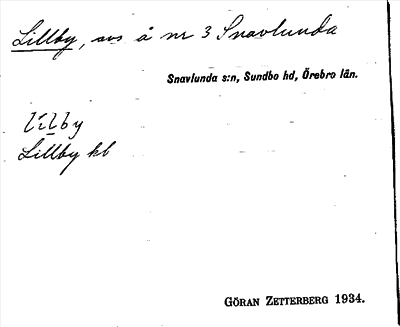 Lillby, avs å nr 3 Snavlunda
Snavlunda s:n, Sundbo hd, Örebro län.
lìlby
Lillby hl
GÖRAN ZETTERBERG 1934.